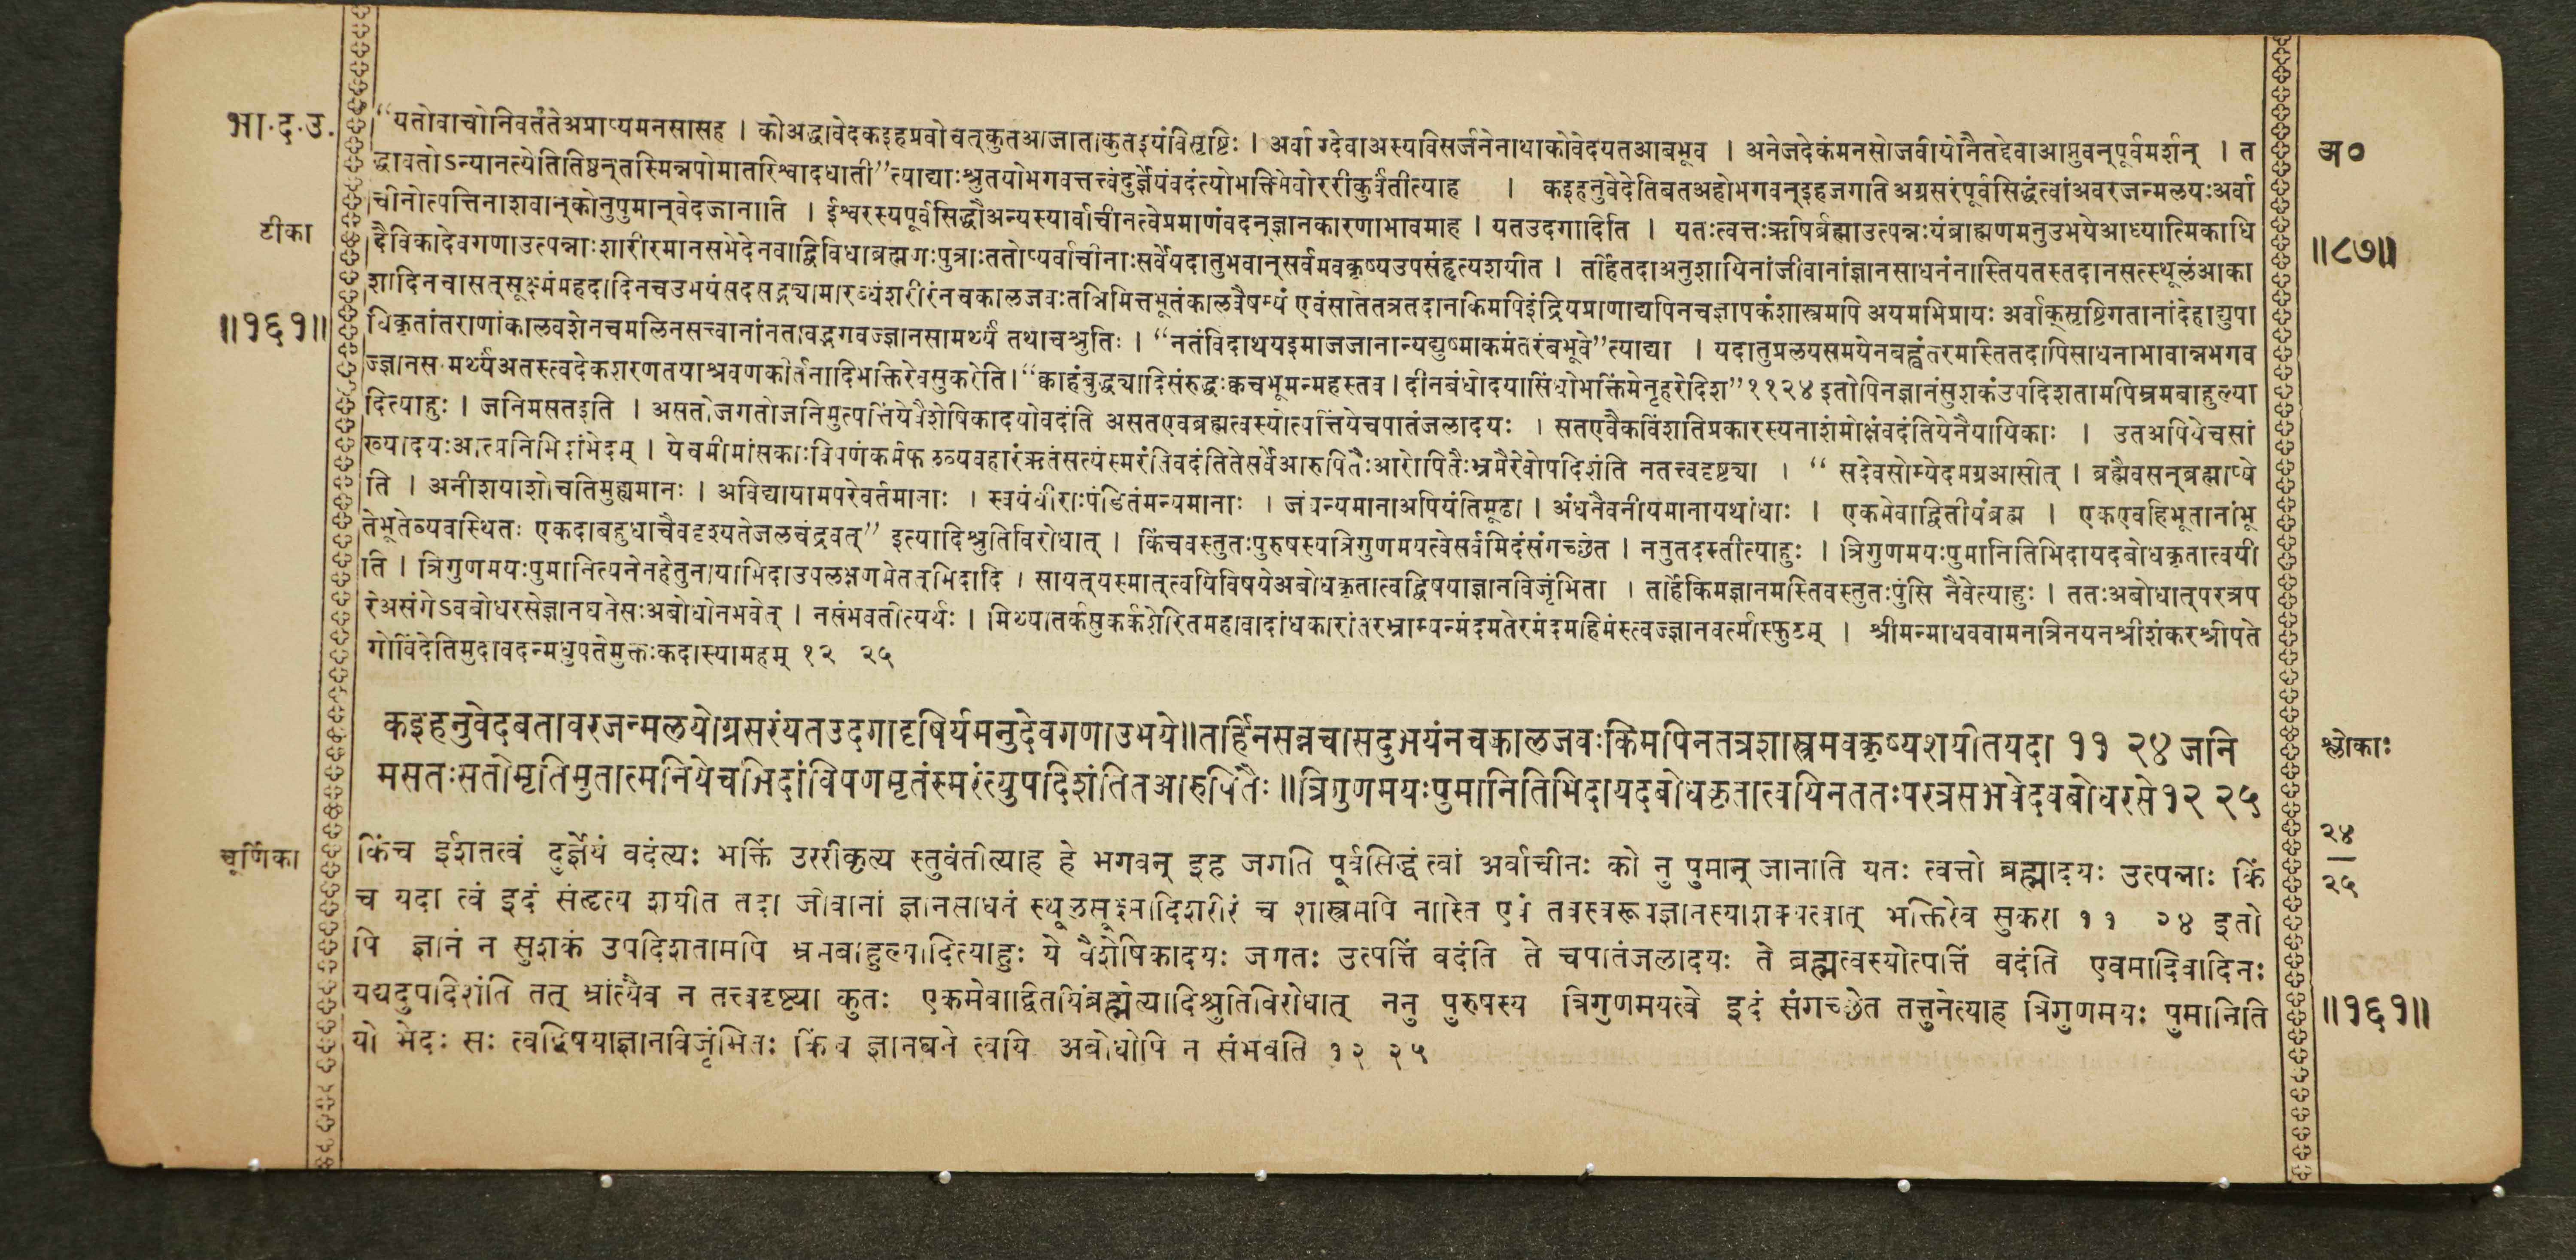 भा.द.उ.
टीका
॥१६१॥
“यतोवाचोनिवर्तंतेअप्राप्यमनसासह । कोअद्धावेदकइहप्रवोचत्कुतआजाताकुतइयंविसृष्टिः । अर्वाग्देवाअस्यविसर्जनेनाथाकोवेदयतआबभूव । अनेजदेकंमनसोजवीयोनैतद्देवाआप्नुवन्पूर्वमर्शन् । त
द्धावतोऽन्यानत्येतितिष्ठन्तस्मिन्नपोमातरिश्वादधाती”त्याद्याःश्रुतयोभगवत्तत्त्वंदुर्ज्ञेयंवदंत्योभक्तिमेवोररीकुर्वंतीत्याह । कइहनुवेदेतिबतअहोभगवन्इहजगति अग्रसरंपूर्वसिद्धंत्वांअवरजन्मलयःअर्वा
चीनोत्पत्तिनाशवान्कोनुपुमान्वेदजानाति । ईश्वरस्यपूर्वसिद्धौअन्यस्यार्वाचीनत्वेप्रमाणंवदन्ज्ञानकारणाभावमाह । यतउदगादिति । यतःत्वत्तःऋषिर्ब्रह्माउत्पन्नःयंब्राह्मणमनुउभयेआध्यात्मिकाधि
दैविकादेवगणाउत्पन्नाःशारीरमानसभेदेनवाद्विविधाब्रह्मगःपुत्राःततोप्यर्वाचीनाःसर्वेयदातुभवान्सर्वमवकृष्यउपसंहृत्यशयीत । तर्हितदाअनुशायिनांजीवानांज्ञानसाधनंनास्तियतस्तदानसत्स्थूलंआका
शादिनचासत्सूक्ष्मंमहदादिनचउभयंसदसद्भ्यामारब्धंशरीरंनचकालजवःतन्निमित्तभूतंकालवैषम्यं एवंसतितत्रतदानकिमपिइंद्रियप्राणाद्यपिनचज्ञापकंशास्त्रमपि अयमभिप्रायः अर्वाक्सृष्टिगतानांदेहाद्युपा
धिकृतांतराणांकालवशेनचमलिनसत्त्वानांनतावद्भगवज्ज्ञानसामर्थ्यं तथाचश्रुतिः । “नतंविदाथयइमाजजानान्यद्युष्माकमंतरंबभूवे”त्याद्या । यदातुप्रलयसमयेनबह्वंतरमस्तितदापिसाधनाभावान्नभगव
ज्ज्ञानस मर्थ्यंअतस्त्वदेकशरणतयाश्रवणकीर्तनादिभक्तिरेवसुकरेति।“क्वाहंबुद्ध्यादिसंरुद्धःक्वचभूमन्महस्तव।दीनबंधोदयासिंधोभक्तिंमेनृहरेदिश”११२४ इतोपिनज्ञानंसुशकंउपदिशतामपिभ्रमबाहुल्या
दित्याहुः । जनिमसतइति । असतोजगतोजनिमुत्पत्तिंयेवैशेषिकादयोवदंति असतएवब्रह्मत्वस्योत्पत्तिंयेचपातंजलादयः । सतएवैकविंशतिप्रकारस्यनाशंमोक्षंवदंतियेनैयायिकाः । उतअपियेचसां
ख्यादयःआत्मनिभिदांभेदम् । येचमीमांसकाःविपणंकर्मफलव्यवहारंऋतंसत्यंस्मरंतिवदंतितेसर्वेआरुपितैःआरोपितैःभ्रमैरेवोपदिशंति नतत्त्वदृष्ट्या । “ सदेवसोम्येदमग्रआसीत् । ब्रह्मैवसन्ब्रह्माप्ये
ति । अनीशयाशोचतिमुह्यमानः । अविद्यायामपरेवर्तमानाः । स्वयंधीराःपंडितंमन्यमानाः । जंघन्यमानाअपियंतिमूढा । अंधनैवनीयमानायथांधाः । एकमेवाद्वितीयंब्रह्म । एकएवहिभूतानांभू
तेभूतेव्यवस्थितः एकदाबहुधाचैवदृश्यतेजलचंद्रवत्” इत्यादिश्रुतिविरोधात् । किंचवस्तुतःपुरुषस्यत्रिगुणमयत्वेसर्वमिदंसंगच्छेत । नतुतदस्तीत्याहुः । त्रिगुणमयःपुमानितिभिदायदबोधकृतात्वयी
ति । त्रिगुणमयःपुमानित्यनेनहेतुनायाभिदाउपलक्षणमेतत्भिदादि । सायत्यस्मात्त्वयिविषयेअबोधकृतात्वद्विषयाज्ञानविजृंभिता । तर्हिकिमज्ञानमस्तिवस्तुतःपुंसि नैवेत्याहुः । ततःअबोधात्परत्रप
रेअसंगेऽवबोधरसेज्ञानघनेसःअबोधोनभवेत् । नसंभवतीत्यर्थः । मिथ्यातर्कसुकर्कशेरितमहावादांधकारांतरभ्राम्यन्मंदमतेरमंदमहिमंस्त्वज्ज्ञानवर्त्मास्फुटम् । श्रीमन्माधववामनत्रिनयनश्रीशंकरश्रीपते
गोविंदेतिमुदावदन्मधुपतेमुक्तःकदास्यामहम् १२ २५
अ०
॥८७॥
कइहनुवेदबतावरजन्मलयोग्रसरंयतउदगादृषिर्यमनुदेवगणाउभये॥तर्हिनसन्नचासदुभयंनचकालजवःकिमपिनतत्रशास्त्रमवकृष्यशयीतयदा ११ २४ जनि
मसतःसतोमृतिमुतात्मनियेचभिदांविपणमृतंस्मरंत्युपदिशंतितआरुपितैः॥त्रिगुणमयःपुमानितिभिदायदबोधकृतात्वयिनततःपरत्रसभवेदवबोधरसे१२ २५
श्लोकाः
२४
२५
चूर्णिका
किंच ईशतत्वं दुर्ज्ञेयं वदंत्यः भक्तिं उररीकृत्य स्तुवंतीत्याह हे भगवन् इह जगति पूर्वसिद्धं त्वां अर्वाचीनः को नु पुमान् जानाति यतः त्वत्तो ब्रह्मादयः उत्पन्नाः किं
च यदा त्वं इदं संहृत्य शयीत तदा जीवानां ज्ञानसाधनं स्थूलसूक्ष्मादिशरीरं च शास्त्रमपि नास्ति एवं तवस्वरूपज्ञानस्याशक्यत्वात् भक्तिरेव सुकरा ११ २४ इतो
पि ज्ञानं न सुशकं उपदिशतामपि भ्रमबाहुल्यादित्याहुः ये वैशेषिकादयः जगतः उत्पत्तिं वदंति ते चपातंजलादयः ते ब्रह्मत्वस्योत्पत्तिं वदंति एवमादिवादिनः
यद्यदुपदिशंति तत् भ्रांत्यैव न तत्त्वदृष्ट्या कुतः एकमेवाद्वितयिंब्रह्मेत्यादिश्रुतिविरोधात् ननु पुरुषस्य त्रिगुणमयत्वे इदं संगच्छेत तत्तुनेत्याह त्रिगुणमयः पुमानिति
यो भेदः सः त्वद्विषयाज्ञानविजृंभितः किंच ज्ञानघने त्वयि अबोधोपि न संभवति १२ २५
॥१६१॥